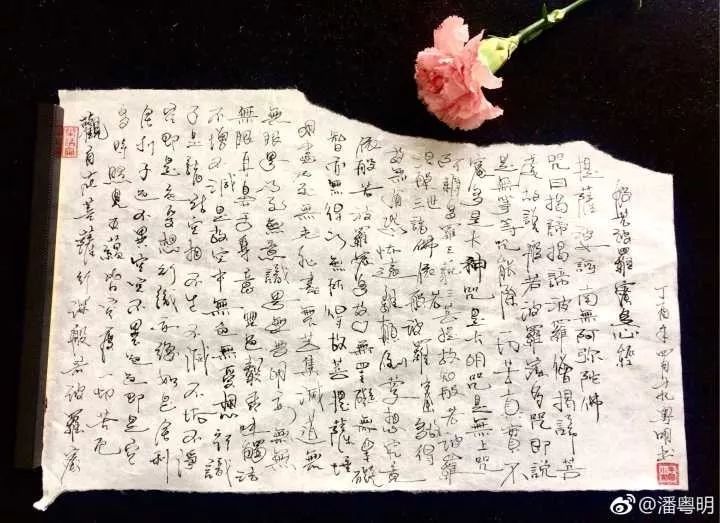 觀自在菩薩行深般若波羅蜜
多時照見五蘊皆空度一切苦厄
舍利子色不異空空不異色色即是空
空即是色受想行識亦復如是舍利
子是諸法空相不生不滅不垢不淨
不增不減是故空中無色無受想行識
無眼耳鼻舌身意無色聲香味觸法
無眼界乃至無意識界無無明亦無無
明盡乃至無老死盡無苦集滅道無
智亦無得以無所得故菩提薩埵
依般若波羅蜜多故心無罣礙無罣礙
故無有恐怖遠離顛倒夢想究竟
涅槃三世諸佛依般若波羅蜜多故得
阿耨多羅三藐三菩提故知般若波羅
蜜多是大神咒是大明咒是無上咒
是無等等咒能除一切苦真實不
虛故說般若波羅蜜多咒即說
咒曰揭諦揭諦波羅僧揭諦菩
提薩婆訶南無阿弥陀佛
般若波羅蜜多心經
丁酉年四月十九粤明书
@潘粤明